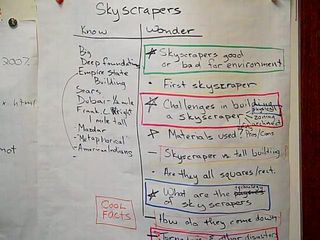 Skyscrapers
Know
Wonder
Big
Deep foundations
Empire State
Building
Sears
Dubai - ½ mile
Frank L. Wright
1 mile tall
Masdar
- Metaphorical
- American Indians
Skyscrapers good
or bad for environment
• First skyscraper
Challenges in building
a skyscraper
physical
zoning
Materials used? Pros/Cons
- Skyscraper vs. tall building
- Are they all squares/rect.
What are the
of skyscrapers
How do they come down
other disasters
COOL
FACTS
2007.
html
not